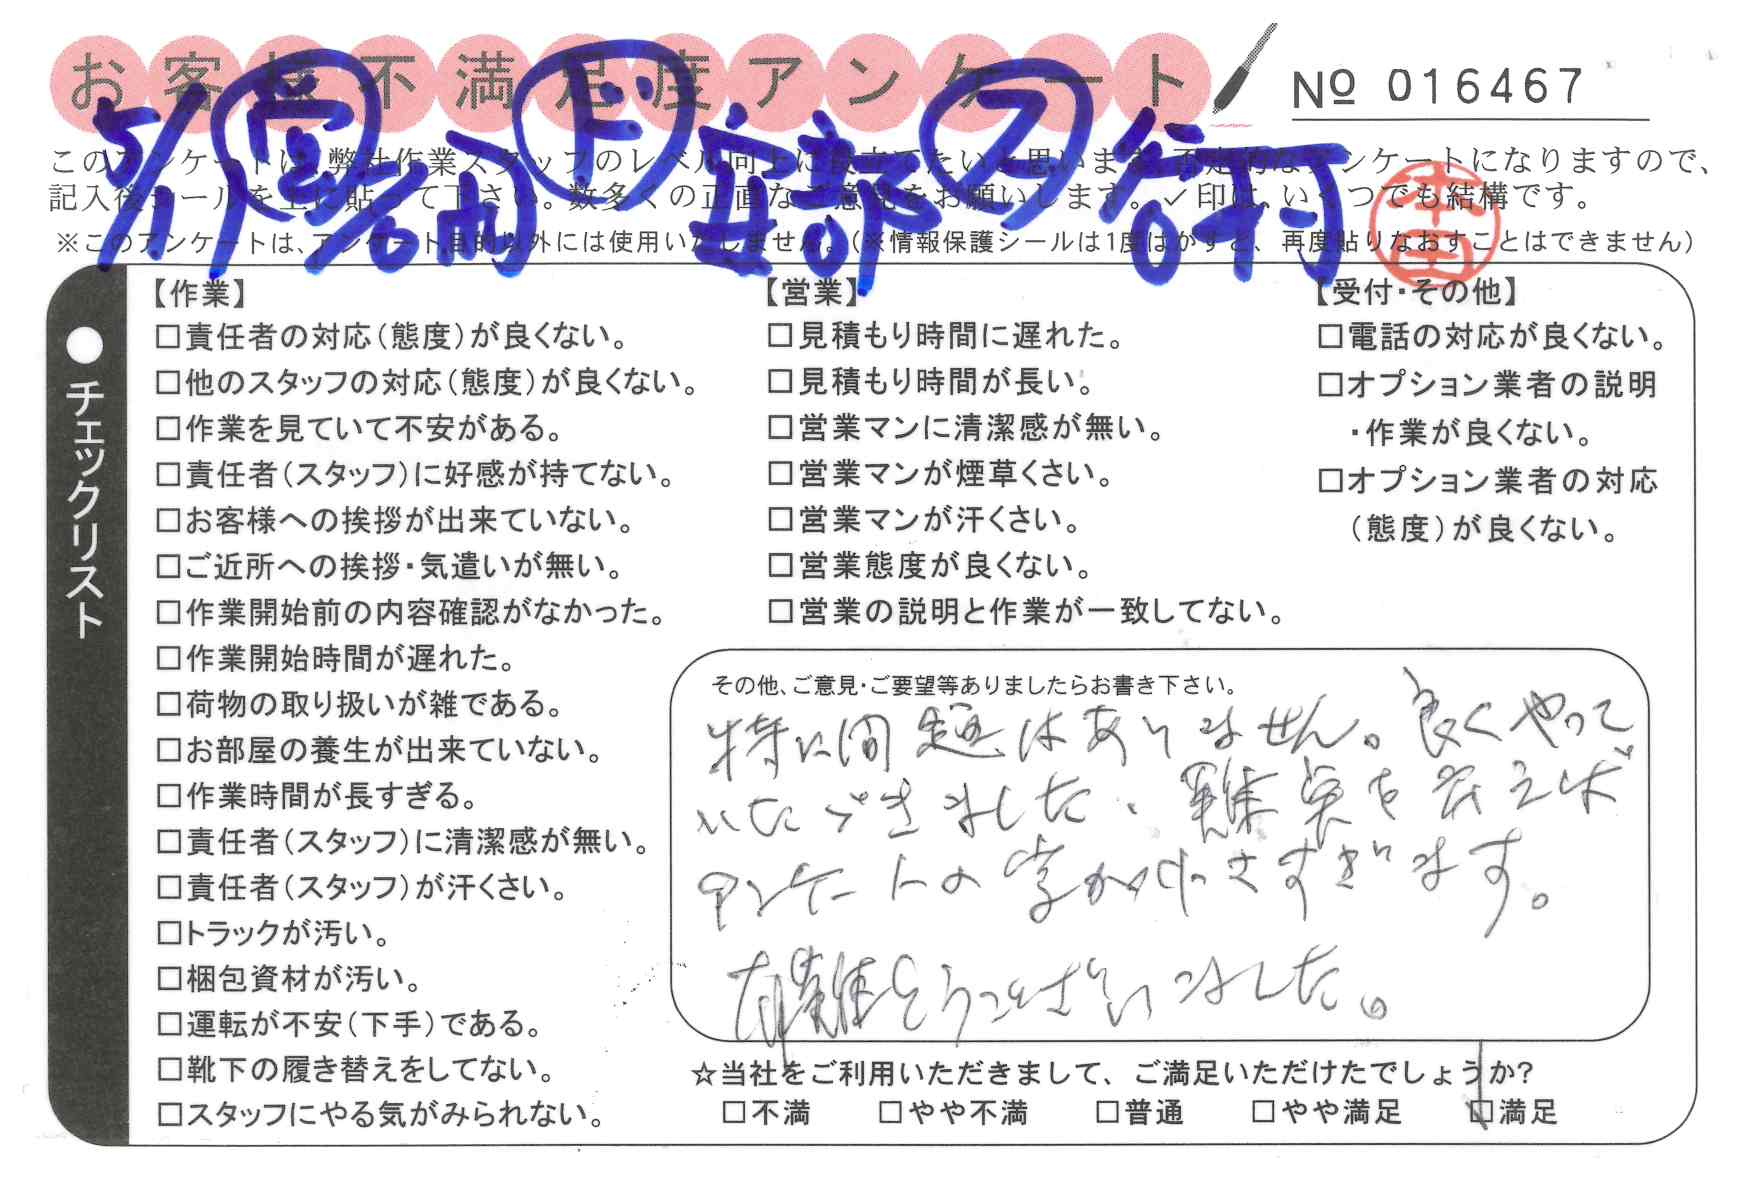 お客様不満足度アンケート
№ 016467
5/1 営 岩内 ド 安部 ス 谷村
このアンケートは、弊社作業スタッフのレベル向上に役立てたいと思います。否定的なアンケートになりますので、
記入後シールを上に貼って下さい。数多くの正直なご意見をお願いします。✓印は、いくつでも結構です。
※このアンケートは、アンケート目的以外には使用いたしません。(※情報保護シールは1度はがすと、再度貼りなおすことはできません)
本田
●チェックリスト
【作業】
□責任者の対応(態度)が良くない。
□他のスタッフの対応(態度)が良くない。
□作業を見ていて不安がある。
□責任者(スタッフ)に好感が持てない。
□お客様への挨拶が出来ていない。
□ご近所への挨拶・気遣いが無い。
□作業開始前の内容確認がなかった。
□作業開始時間が遅れた。
□荷物の取り扱いが雑である。
□お部屋の養生が出来ていない。
□作業時間が長すぎる。
□責任者(スタッフ)に清潔感が無い。
□責任者(スタッフ)が汗くさい。
□トラックが汚い。
□梱包資材が汚い。
□運転が不安(下手)である。
□靴下の履き替えをしてない。
□スタッフにやる気がみられない。
【営業】
□見積もり時間に遅れた。
□見積もり時間が長い。
□営業マンに清潔感が無い。
□営業マンが煙草くさい。
□営業マンが汗くさい。
□営業態度が良くない。
□営業の説明と作業が一致してない。
【受付・その他】
□電話の対応が良くない。
□オプション業者の説明
・作業が良くない。
□オプション業者の対応
(態度)が良くない。
その他、ご意見・ご要望等ありましたらお書き下さい。
特に問題はありません。良くやって
いただきました、難点を言えば
アンケートの字が小さすぎます。
有難とうございました。
☆当社をご利用いただきまして、ご満足いただけたでしょうか?
□不満 □やや不満 □普通 □やや満足 □満足